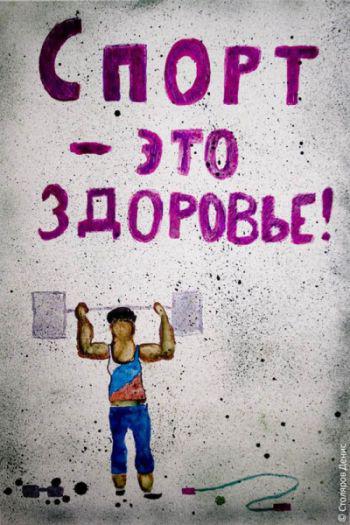 Спорт
- это
здоровье!
© Столяров Денис